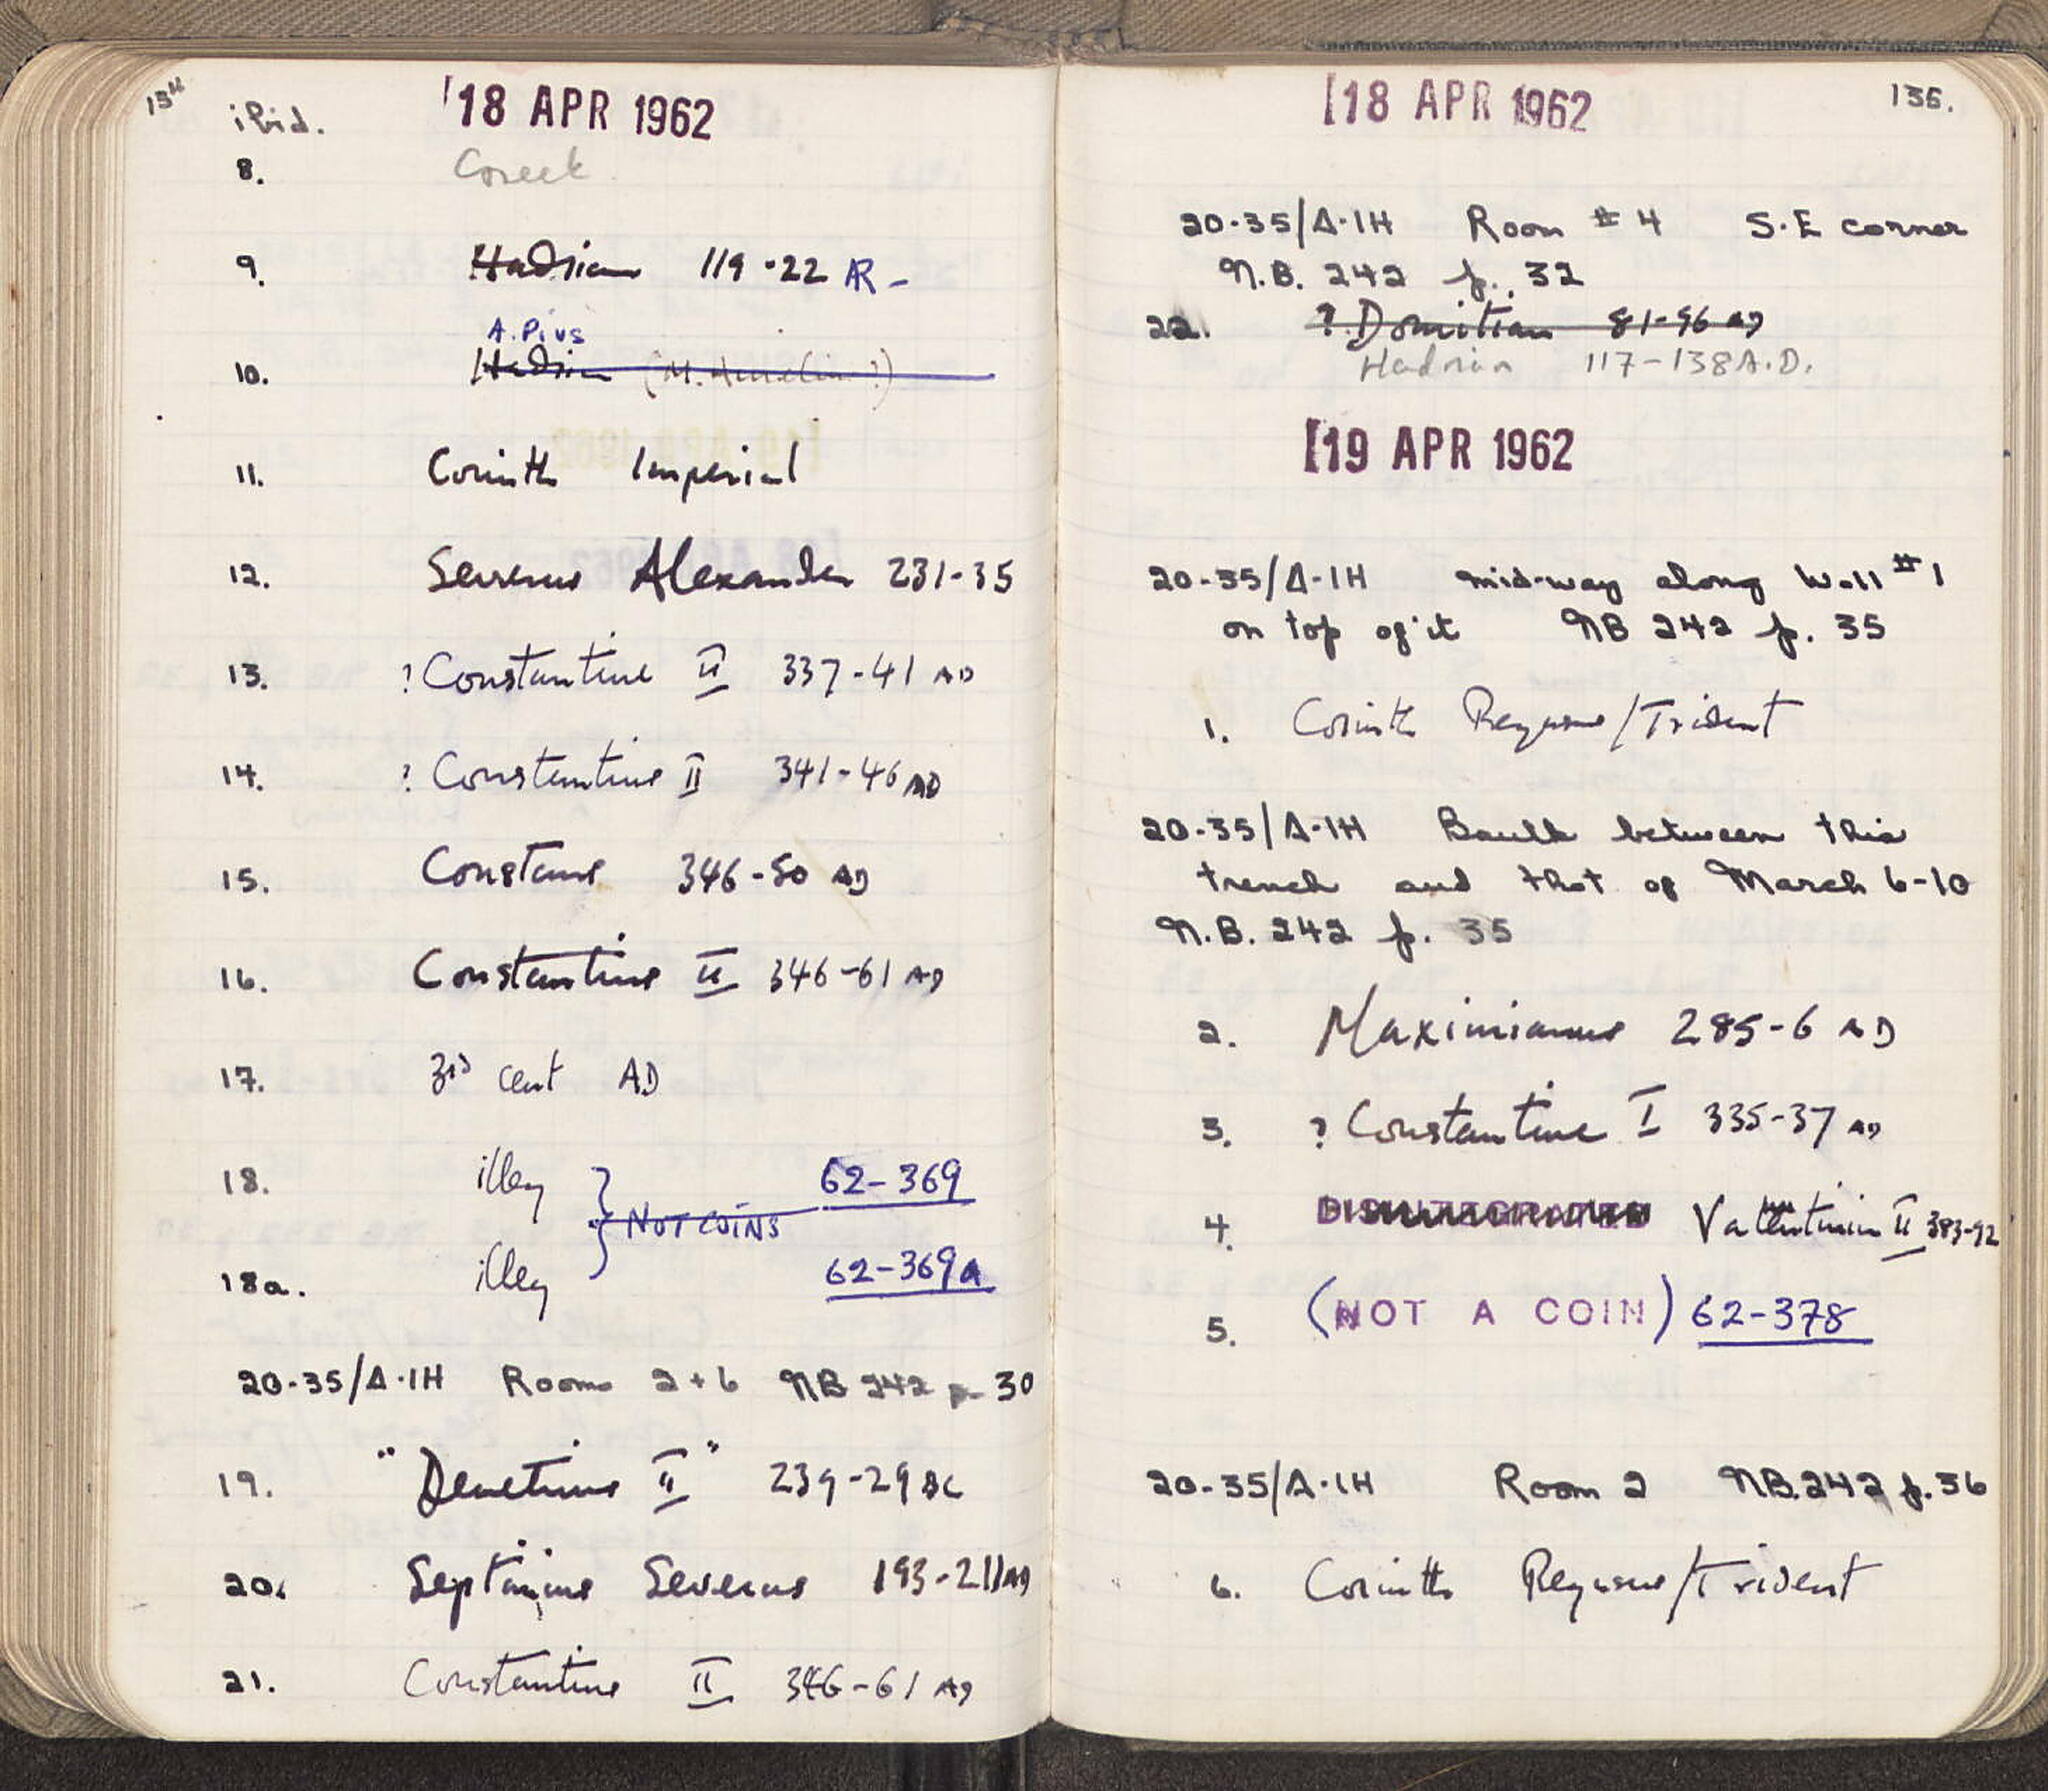 134
ibid. 18 APR 1962
8. Greek
9. Hadrian 119-22 AR -
A. Pius
10. Hadrian (M. Aurelius ?)
11. Corinth Imperial
12. Severus Alexander 231-35
13. ? Constantine II 337-41 AD
14. ? Constantine II 341-46 AD
15. Constans 346-50 AD
16. Constantius II 346-61 AD
17. 3rd cent AD
18. illeg 62-369
NOT COINS
18a. illeg 62-369a
20-35/A-1H Rooms 2+6 NB 242 p 30
19. "Demetrius II" 239-29 BC
20. Septimius Severus 193-211 AD
21. Constantius II 346-61 AD
18 APR 1962 135.
20-35/A-1H Room #4 S.E corner
N.B. 242 p. 32
22. ? Domitian 81-96 AD
Hadrian 117-138 A.D.
19 APR 1962
20-35/A-1H mid-way along Wall #1
on top of it NB 242 p. 35
1. Corinth Pegasus/Trident
20-35/A-1H Baulk between this
trench and that of March 6-10
N.B. 242 p. 35
2. Maximianus 285-6 AD
3. ? Constantine I 335-37 AD
4. DISINTEGRATED Valentinian II 383-92
5. (NOT A COIN) 62-378
20-35/A-1H Room 2 NB 242 p. 36
6. Corinth Pegasus/Trident